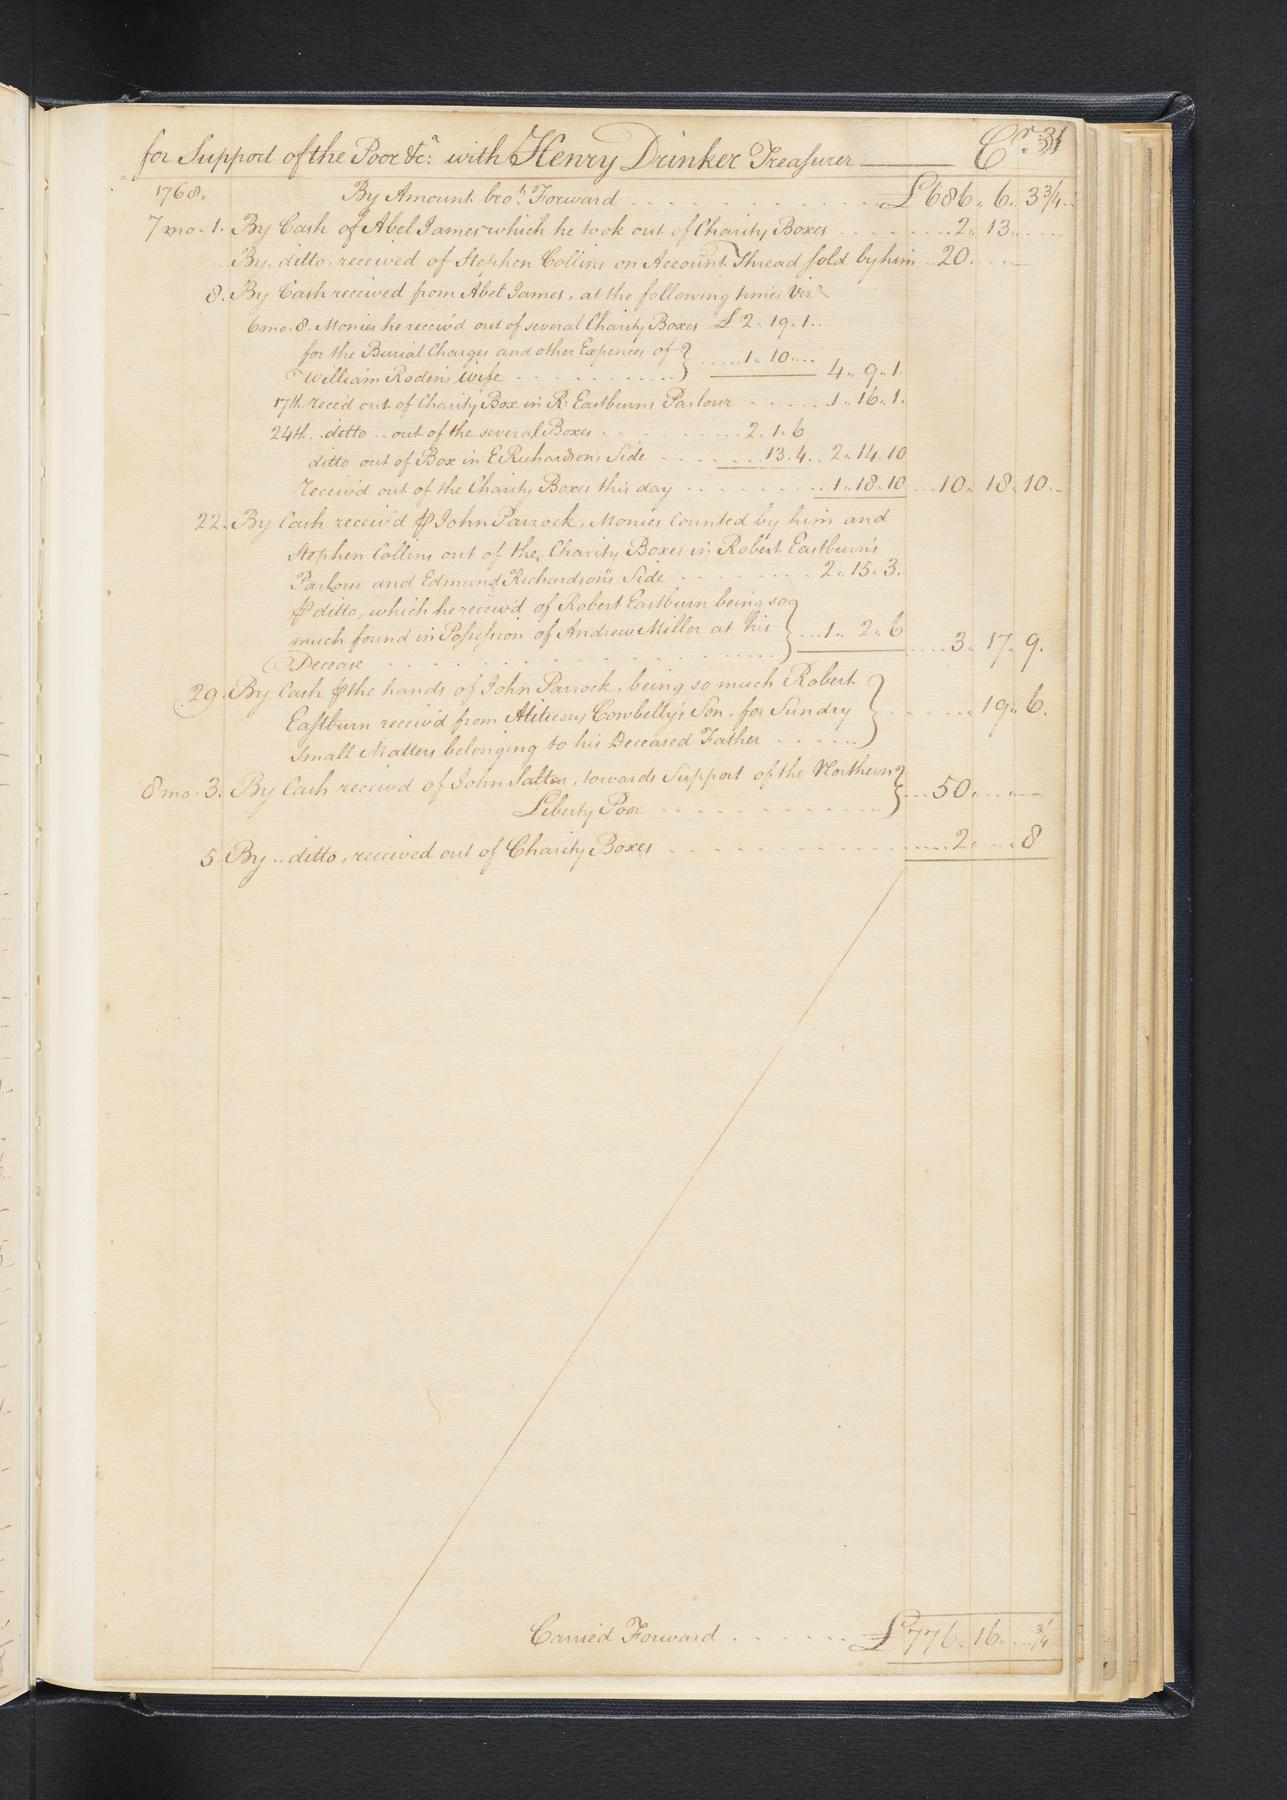 for Support of the Poor &c.a with Henry Drinker Treasurer Cr. 31
1768. By Amount bro.t Forward £686.. 6.. 3 3/4
7 mo. 1. By Cash of Abel James which he took out of Charity Boxes 2.. 13..
By ditto, received of Stephen Collins on Account Thread sold by him 20.
8. By Cash received from Abel James, at the following times Viz
6 mo. 8. Monies he receiv'd out of several Charity Boxes £ 2.. 19.. 1..
for the Burial Charges and other Expences of } 1.. 10
William Roden's Wife 4.. 9.. 1.
17th. rece'd out of Charity Box in R. Eastburns Parlour 1.. 16.. 1.
24th. ditto out of the several Boxes 2. 1. 6
ditto out of Box in E Richardson's Side 13. 4. 2.. 14. 10
Receiv'd out of the Charity Boxes this day 1.. 18. 10 10.. 18. 10
22. By Cash receiv'd ⅌ John Parrock, Monies Counted by him and
Stephen Collins out of the Charity Boxes in Robert Eastburn's
Parlour and Edmund Richardson's Side 2.. 15.. 3.
⅌ ditto, which he receiv'd of Robert Eastburn being so
much found in Possession of Andrew Miller at his } 1.. 2.. 6 3.. 17.. 9.
Decease
29. By Cash ⅌ the hands of John Parrock, being so much Robert
Eastburn receiv'd from Cowbelly's Son, for Sundry } 19.. 6.
Small Matters belonging to his Deceased Father
8 mo. 3. By Cash receiv'd of John Salter, towards Support of the Northern } 50
Liberty Poor
5. By ditto, received out of Charity Boxes 2 8
Carried Forward £776. 16.. 3/4